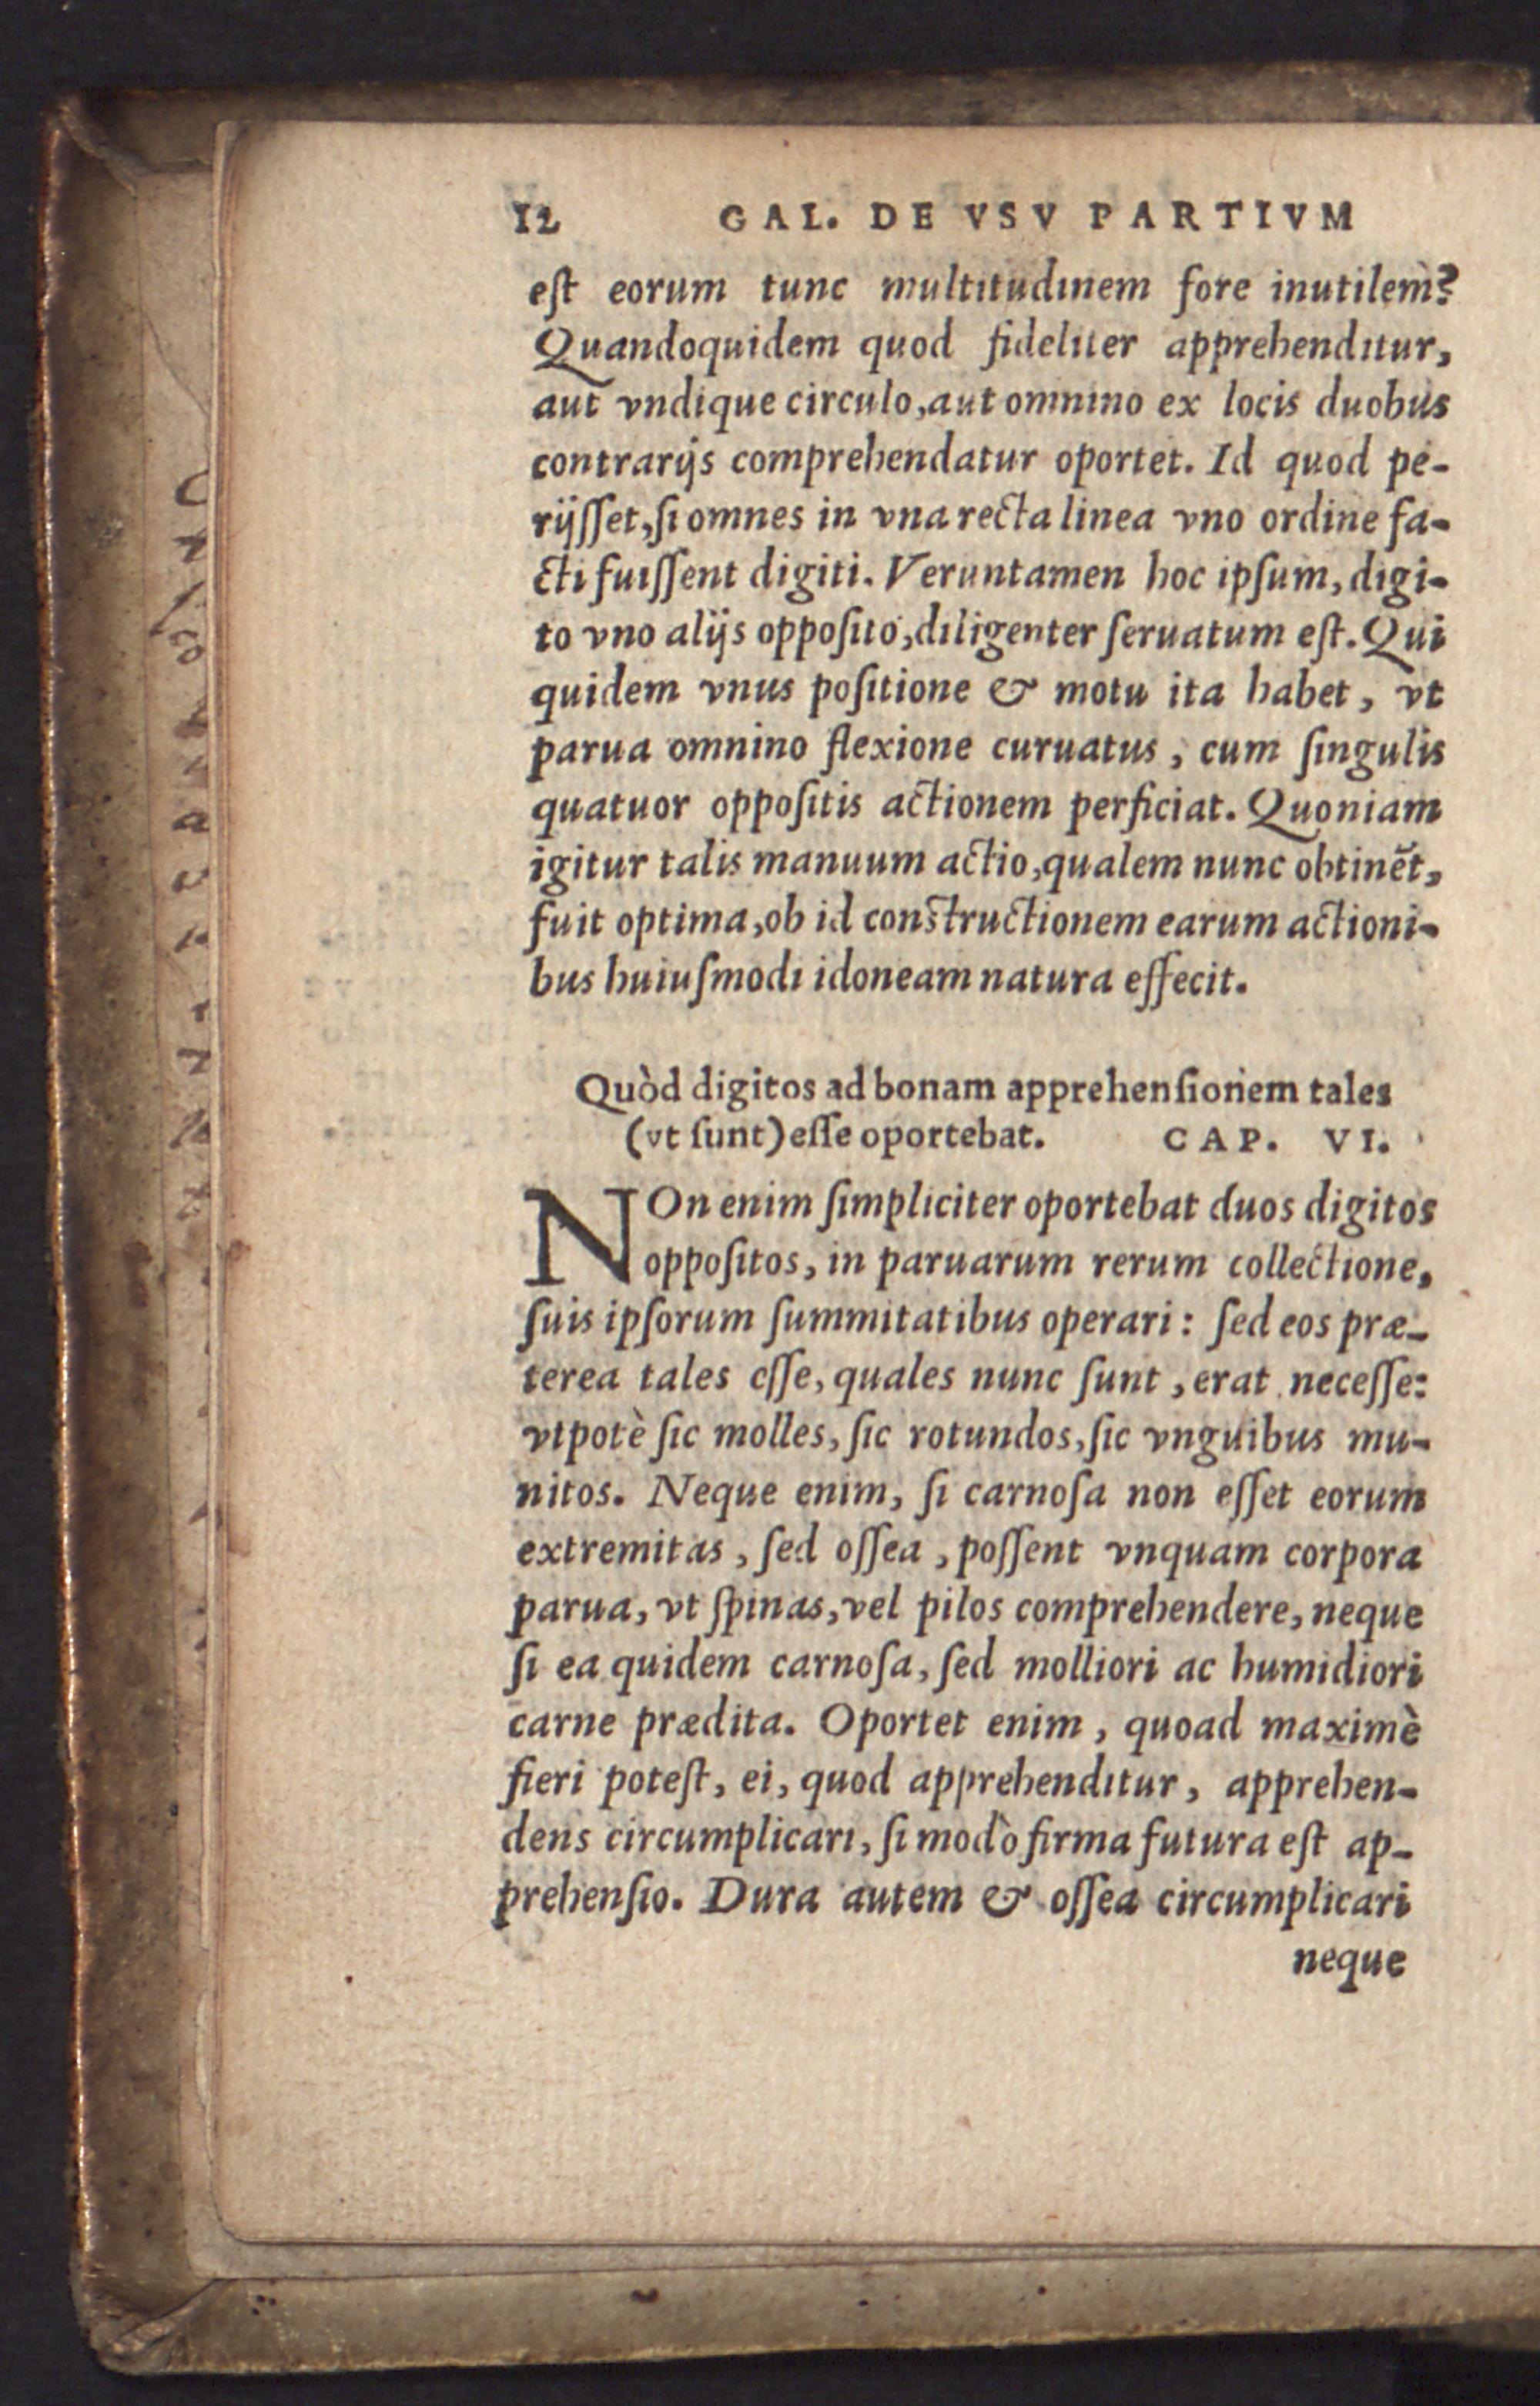 12 GAL. DE VSV PARTIVM
eſt eorum tunc multitudinem fore inutilem?
Quandoquidem quod fideliter apprehenditur,
aut vndique circulo, aut omnino ex locis duobus
contrarijs comprehendatur oportet. Id quod pe-
rijſſet, ſi omnes in vna recta linea vno ordine fa-
cti fuiſſent digiti. Veruntamen hoc ipſum, digi-
to vno alijs oppoſito, diligenter ſeruatum eſt. Qui
quidem vnus poſitione & motu ita habet, vt
parua omnino flexione curuatus, cum ſingulis
quatuor oppoſitis actionem perficiat. Quoniam
igitur talis manuum actio, qualem nunc obtinēt,
fuit optima, ob id constructionem earum actioni-
bus huiuſmodi idoneam natura effecit.
Quòd digitos ad bonam apprehenſionem tales
(vt ſunt) eſſe oportebat. CAP. VI.
NOn enim ſimpliciter oportebat duos digitos
oppoſitos, in paruarum rerum collectione,
ſuis ipſorum ſummitatibus operari: ſed eos præ-
terea tales eſſe, quales nunc ſunt, erat neceſſe:
vtpotè ſic molles, ſic rotundos, ſic vnguibus mu-
nitos. Neque enim, ſi carnoſa non eſſet eorum
extremitas, ſed oſſea, poſſent vnquam corpora
parua, vt ſpinas, vel pilos comprehendere, neque
ſi ea quidem carnoſa, ſed molliori ac humidiori
carne prædita. Oportet enim, quoad maximè
fieri poteſt, ei, quod apprehenditur, apprehen-
dens circumplicari, ſi modò firma futura eſt ap-
prehenſio. Dura autem & oſſea circumplicari
neque